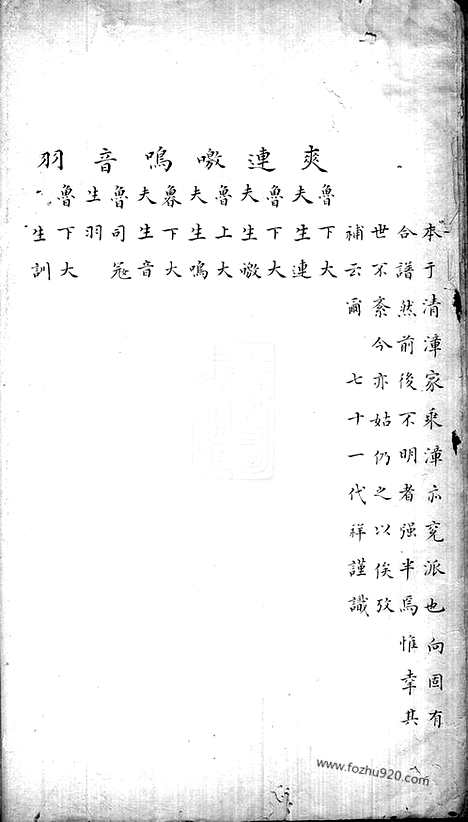 本于清漳家乘漳亦兖派也向固有
合譜然前後不明者强半焉惟幸其
世不紊今亦姑仍之以俟攷
補云爾 七十一代祥謹識
爽
魯下大
夫生連
連
魯下大
夫生噭
噭
魯上大
夫生鳴
鳴
魯下大
夫生音
音
魯司冦
生羽
羽
魯下大
夫生訓
www.fozhu920.com